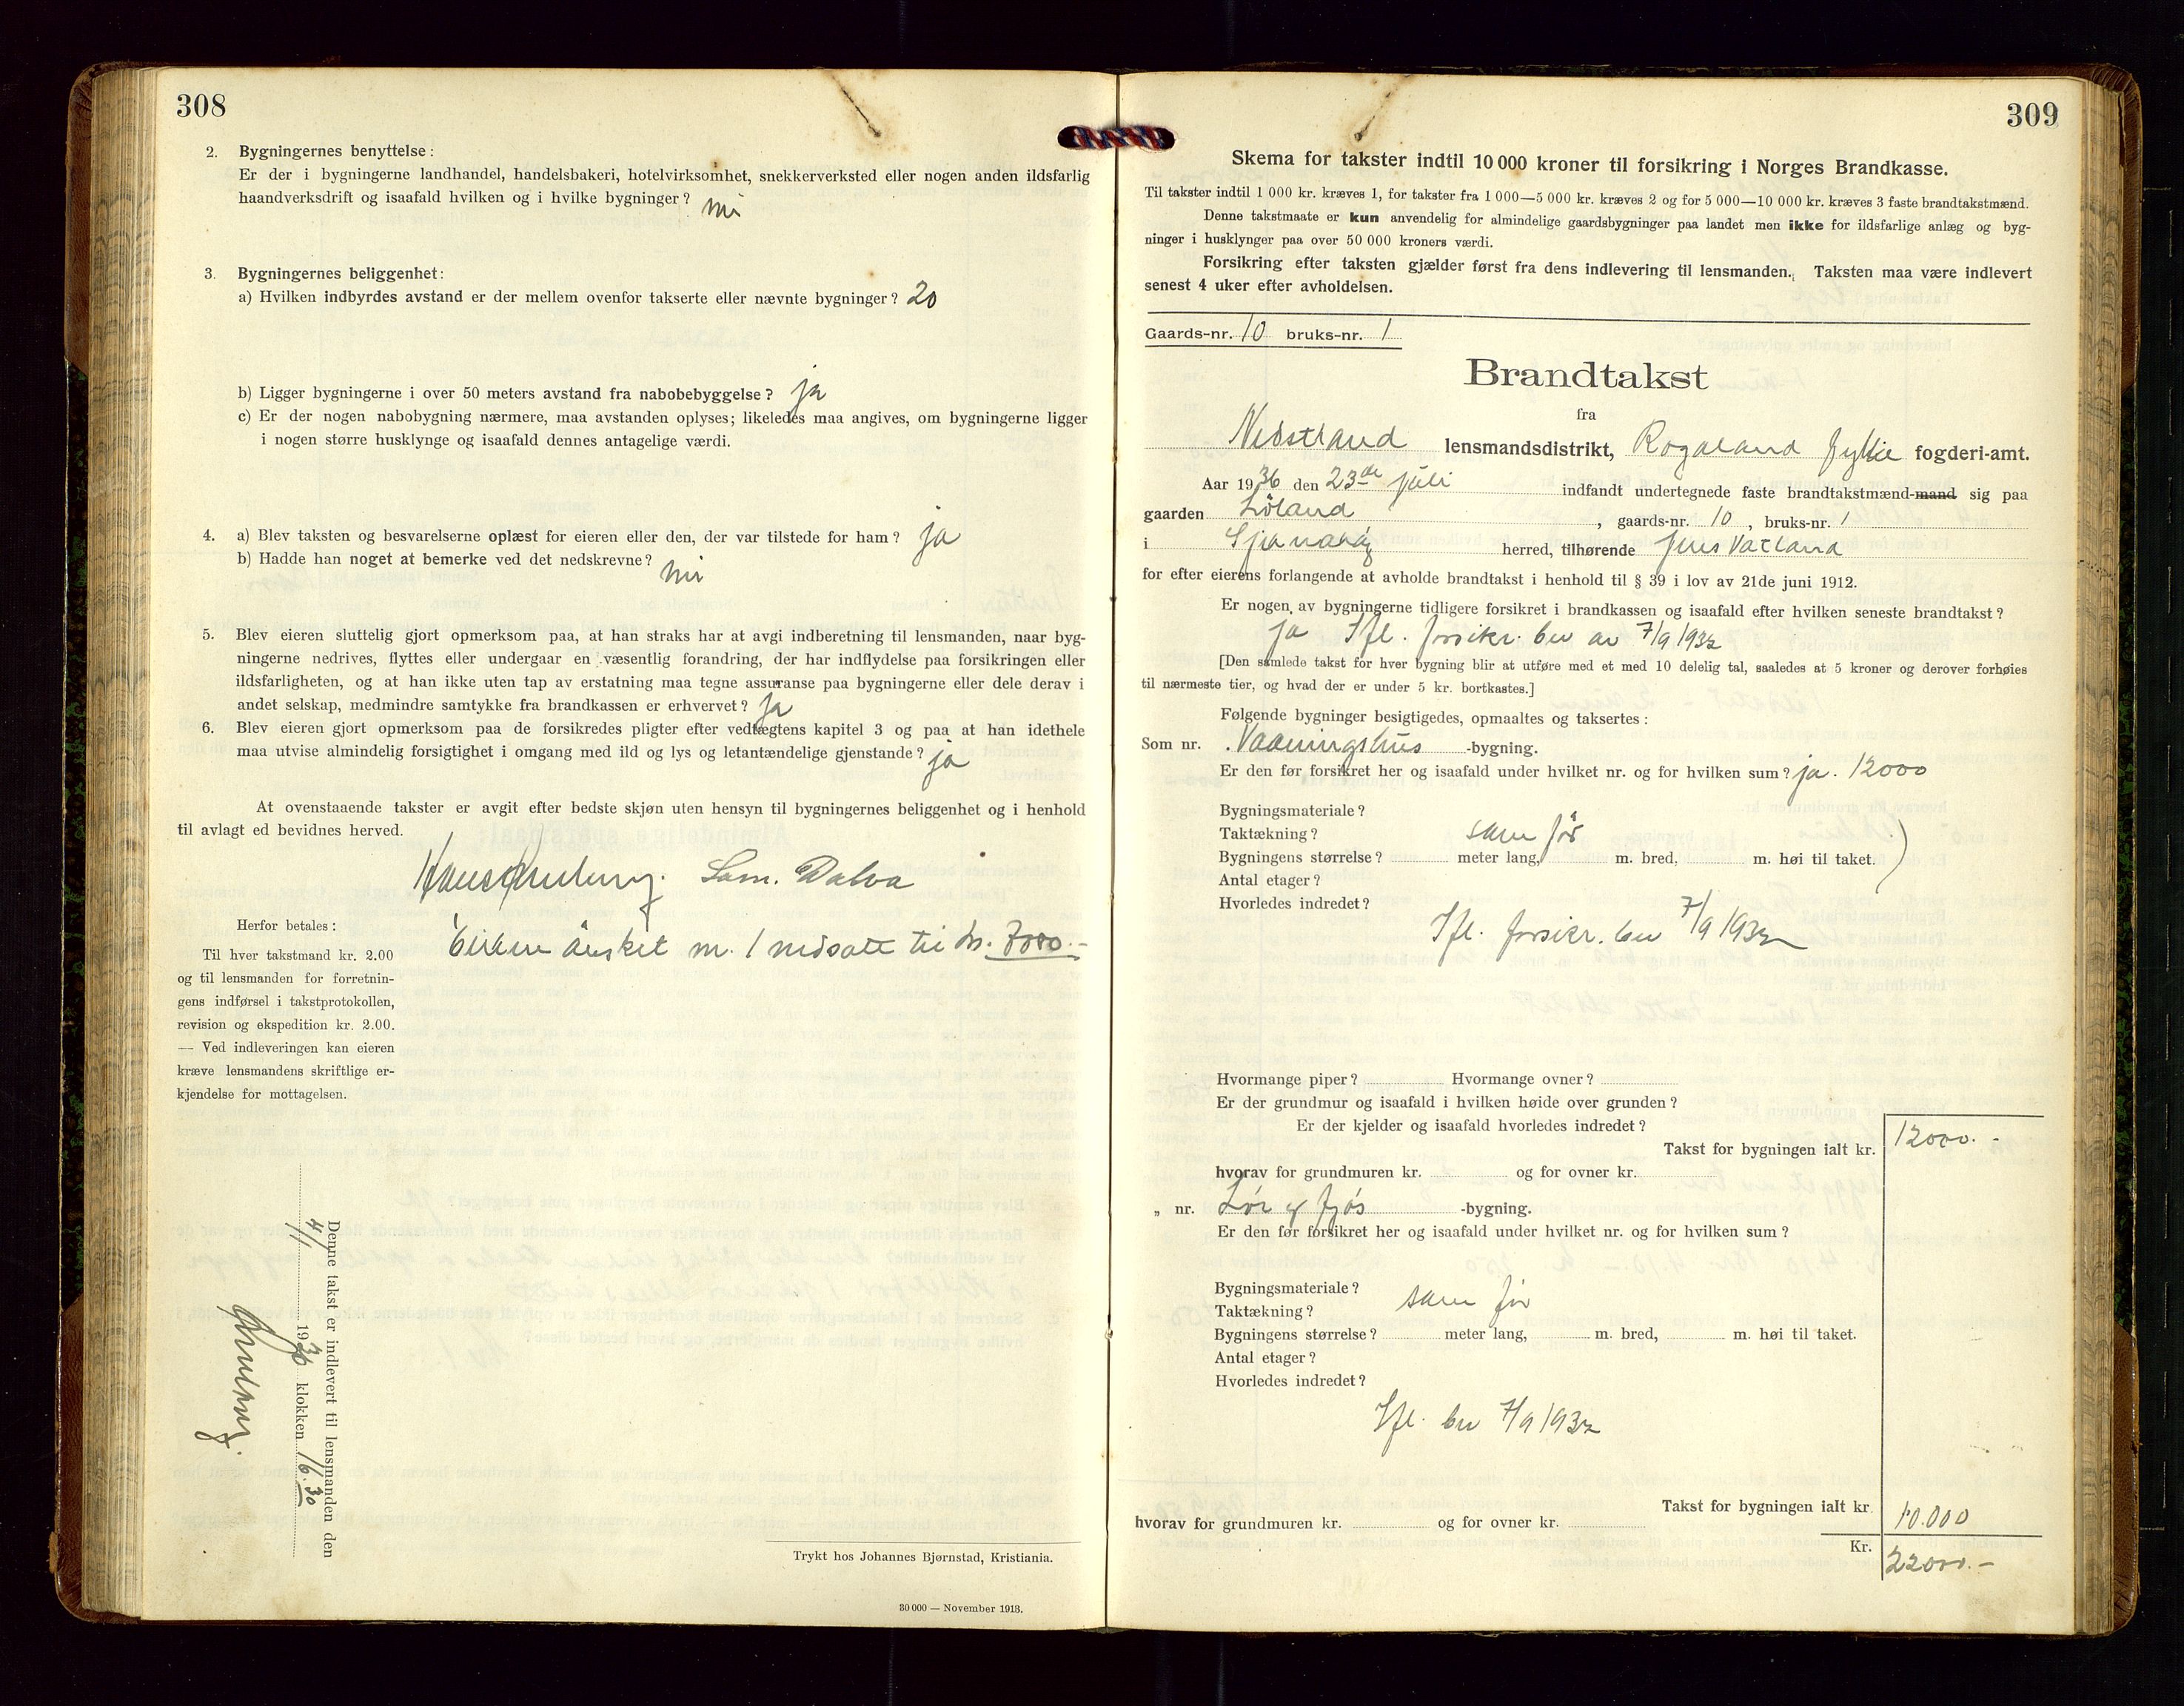 308
2. Bygningernes benyttelse:
Er der i bygningerne landhandel, handelsbakeri, hotelvirksomhet, snekkerverksted eller nogen anden ildsfarlig
haandverksdrift og isaafald hvilken og i hvilke bygninger? nei
3. Bygningernes beliggenhet:
a) Hvilken indbyrdes avstand er der mellem ovenfor takserte eller nævnte bygninger? 20
b) Ligger bygningerne i over 50 meters avstand fra nabobebyggelse? ja
c) Er der nogen nabobygning nærmere, maa avstanden oplyses; likeledes maa angives, om bygningerne ligger
i nogen større husklynge og isaafald dennes antagelige værdi.
4. a) Blev taksten og besvarelserne oplæst for eieren eller den, der var tilstede for ham? ja
b) Hadde han noget at bemerke ved det nedskrevne? nei
5. Blev eieren sluttelig gjort opmerksom paa, at han straks har at avgi indberetning til lensmanden, naar byg-
ningerne nedrives, flyttes eller undergaar en væsentlig forandring, der har indflydelse paa forsikringen eller
ildsfarligheten, og at han ikke uten tap av erstatning maa tegne assuranse paa bygningerne eller dele derav i
andet selskap, medmindre samtykke fra brandkassen er erhvervet? Ja
6. Blev eieren gjort opmerksom paa de forsikredes pligter efter vedtægtens kapitel 3 og paa at han idethele
maa utvise almindelig forsigtighet i omgang med ild og lys og letantændelige gjenstande? ja
At ovenstaaende takster er avgit efter bedste skjøn uten hensyn til bygningernes beliggenhet og i henhold
til avlagt ed bevidnes herved.
Sam. Dalva
ønsket nr. 1 nedsatt til kr. 7000.-
Herfor betales:
Til hver takstmand kr. 2.00
og til lensmanden for forretnin-
gens indførsel i takstprotokollen,
revision og ekspedition kr. 2.00.
— Ved indleveringen kan eieren
kræve lensmandens skriftlige er-
kjendelse for mottagelsen.
Denne takst er indlevert til lensmanden den
4/11 1936 klokken 16.30
Trykt hos Johannes Bjørnstad, Kristiania.
30 000 — November 1913.
309
Skema for takster indtil 10 000 kroner til forsikring i Norges Brandkasse.
Til takster indtil 1 000 kr. kræves 1, for takster fra 1 000—5 000 kr. kræves 2 og for 5 000—10 000 kr. kræves 3 faste brandtakstmænd.
Denne takstmaate er kun anvendelig for almindelige gaardsbygninger paa landet men ikke for ildsfarlige anlæg og byg-
ninger i husklynger paa over 50 000 kroners værdi.
Forsikring efter taksten gjælder først fra dens indlevering til lensmanden. Taksten maa være indlevert
senest 4 uker efter avholdelsen.
Gaards-nr. 10 bruks-nr. 1
Brandtakst
fra
Nedstrand lensmandsdistrikt, Rogaland fylke fogderi-amt.
Aar 1936 den 23de juli indfandt undertegnede faste brandtakstmænd-mand sig paa
gaarden Løland, gaards-nr. 10, bruks-nr. 1
i Sjernarøy herred, tilhørende Jens Vatland
for efter eierens forlangende at avholde brandtakst i henhold til § 39 i lov av 21de juni 1912.
Er nogen av bygningerne tidligere forsikret i brandkassen og isaafald efter hvilken seneste brandtakst?
ja Ifl. forsikr. bev av 7/9 1932
[Den samlede takst for hver bygning blir at utføre med et med 10 delelig tal, saaledes at 5 kroner og derover forhøies
til nærmeste tier, og hvad der er under 5 kr. bortkastes.]
Følgende bygninger besigtigedes, opmaaltes og taksertes:
Som nr. Vaaningshus -bygning.
Er den før forsikret her og isaafald under hvilket nr. og for hvilken sum? ja. 12000
Bygningsmateriale?
Taktækning? som før
Bygningens størrelse? meter lang, m. bred, m. høi til taket.
Antal etager?
Hvorledes indredet?
Ifl. forsikr. bev 7/9 1932
Hvormange piper? Hvormange ovner?
Er der grundmur og isaafald i hvilken høide over grunden?
Er der kjelder og isaafald hvorledes indredet?
Takst for bygningen ialt kr. 12000.-
hvorav for grundmuren kr. og for ovner kr.
„ nr. Løe og fjøs -bygning.
Er den før forsikret her og isaafald under hvilket nr. og for hvilken sum?
Bygningsmateriale?
Taktækning? som før
Bygningens størrelse? meter lang, m. bred, m. høi til taket.
Antal etager?
Hvorledes indredet?
Ifl. bev 7/9 1932
Takst for bygningen ialt kr. 10.000
hvorav for grundmuren kr. og for ovner kr.
Kr. 22000.-